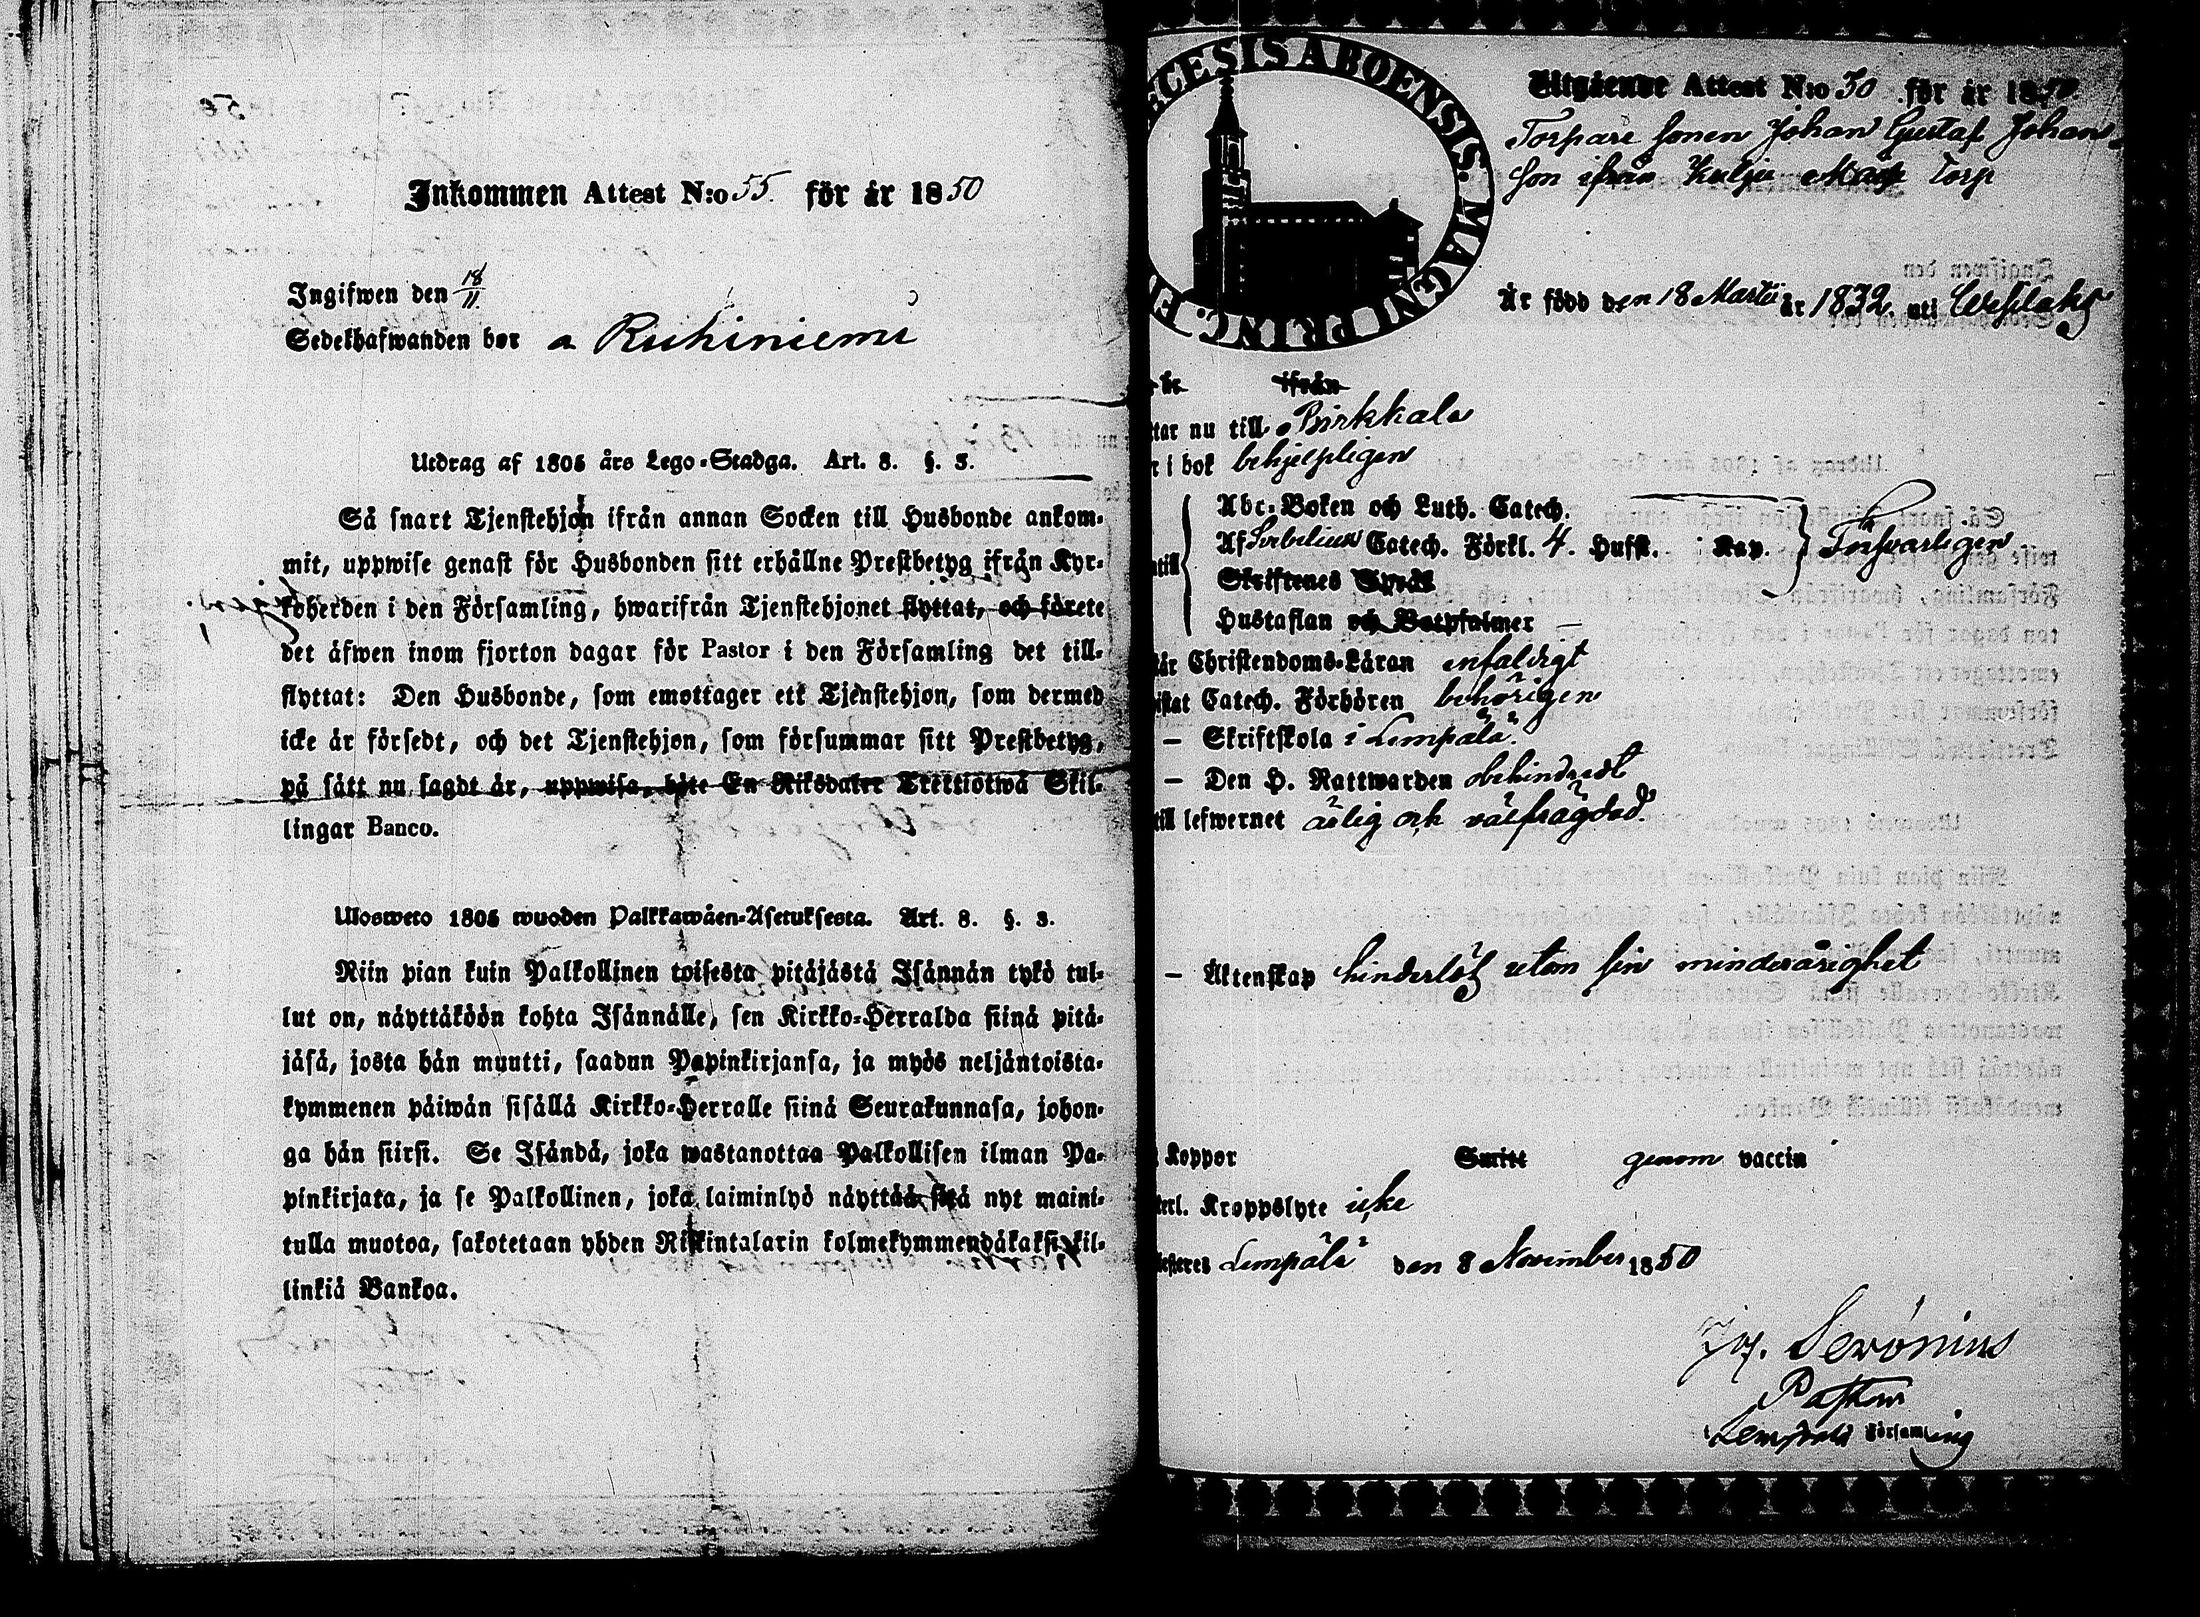 Inkommen Attest N:o 55. för år 1850
Ingifwen den 18/11.
Sedelhafwanden bor a Ruhiniemi
Utdrag af 1805 års Lego-Stadga. Art. 8. §. 3.
Så snart Tjenstehjon ifrån annan Socken till Husbonde ankom-
mit, uppwise genast för Husbonden sitt erhållne Prestbetyg ifrån Kyr-
koherden i den Församling, hwarifrån Tjenstehjonet flyttat, och förete
det äfwen inom fjorton dagar för Pastor i den Församling det till-
flyttat: Den Husbonde, som emottager ett Tjenstehjon, som dermed
icke är försedt, och det Tjenstehjon, som försummar sitt Prestbetyg,
på sätt nu sagdt är, uppwisa, böte En Riksdaler Trettiotwå Skil-
lingar Banco.
Ulosweto 1805 wuoden Palkkawäen-Asetuksesta. Art. 8. §. 3.
Niin pian kuin Palkollinen toisesta pitäjästä Isännän tykö tul-
lut on, näyttäköön kohta Isännälle, sen Kirkko-Herralda siinä pitä-
jäsä, josta hän muutti, saadun Papinkirjansa, ja myös neljäntoista-
kymmenen päiwän sisällä Kirkko-Herralle siinä Seurakunnasa, johon-
ga hän siirsi. Se Isändä, joka wastanottaa Palkollisen ilman Pa-
pinkirjata, ja se Palkollinen, joka laiminlyö näyttää sitä nyt maini-
tulla muotoa, sakotetaan yhden Riikintalarin kolmekymmendäkaksi kil-
linkiä Bankoa.
CESIS ABOENSIS. MAGNI PRINC. F
Utgående Attest N:o 50 för år 1850
Torpare sonen Johan Gustaf Johans-
son ifrån Kulju Torp
Är född den 18 Martii år 1832. uti Wesilaks
ifrån
tar nu till Birkkala
r i bok behjelpligen
Abc-Boken och Luth. Catech.
Af Svebelius Catech. Förkl. 4. Hufst. Kap. Försvarligen
Skriftenes Språk
Hustaflan och Botpsalmer —
tår Christendoms-Läran enfaldigt
istat Catech. Förhören behörigen
— Skriftskola i Lempälä.
— Den H. Nattwarden obehindradt
till lefwernet ärlig och välfrägdad.
— Äktenskap hinderlös utom sin minderårighet
Koppor Smitt genom vaccin
terl. Kroppslyte icke
testeres Lempälä den 8 November 1850
Jos. Serónius
Pastor
i Lempälä Församling